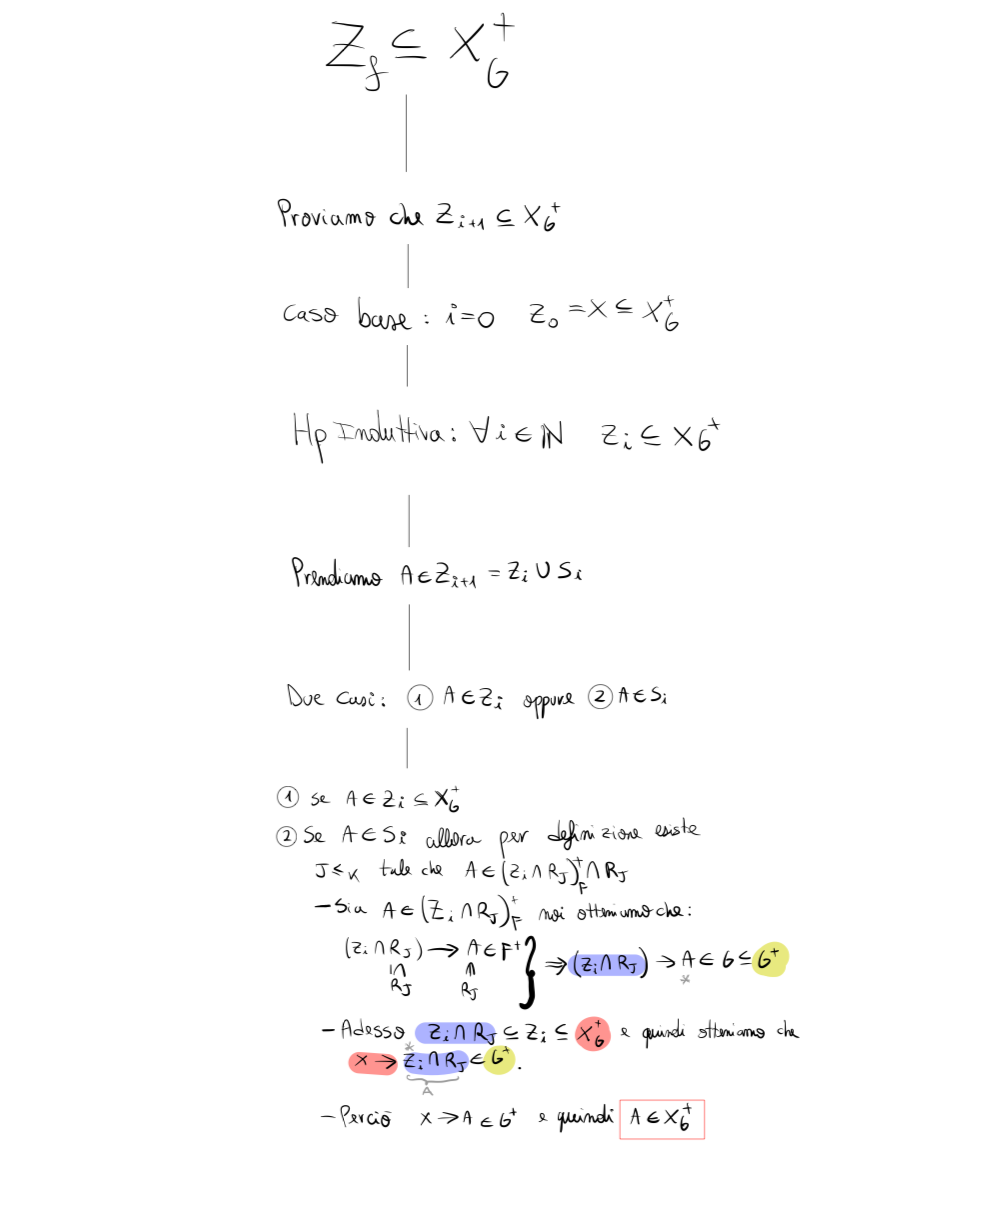 Z_f ⊆ X_G^+
Proviamo che Z_{i+1} ⊆ X_G^+
Caso base : i=0 Z_0 = X ⊆ X_G^+
Hp Induttiva: ∀i∈ℕ Z_i ⊆ X_G^+
Prendiamo A∈Z_{i+1} = Z_i ∪ S_i
Due casi: ① A∈Z_i oppure ② A∈S_i
① se A∈Z_i ⊆ X_G^+
② Se A∈S_i allora per definizione esiste
J≤K tale che A∈(Z_i∩R_J)_F^+∩R_J
- Sia A∈(Z_i∩R_J)_F^+ noi otteniamo che:
(Z_i∩R_J) → A∈F^+ } ⇒ (Z_i∩R_J) → A∈G⊆G^+
∩ ⋒ *
R_J R_J
- Adesso Z_i∩R_J ⊆ Z_i ⊆ X_G^+ e quindi otteniamo che
*
X → Z_i∩R_J ∈ G^+.
A
- Perciò X→A∈G^+ e quindi A∈X_G^+